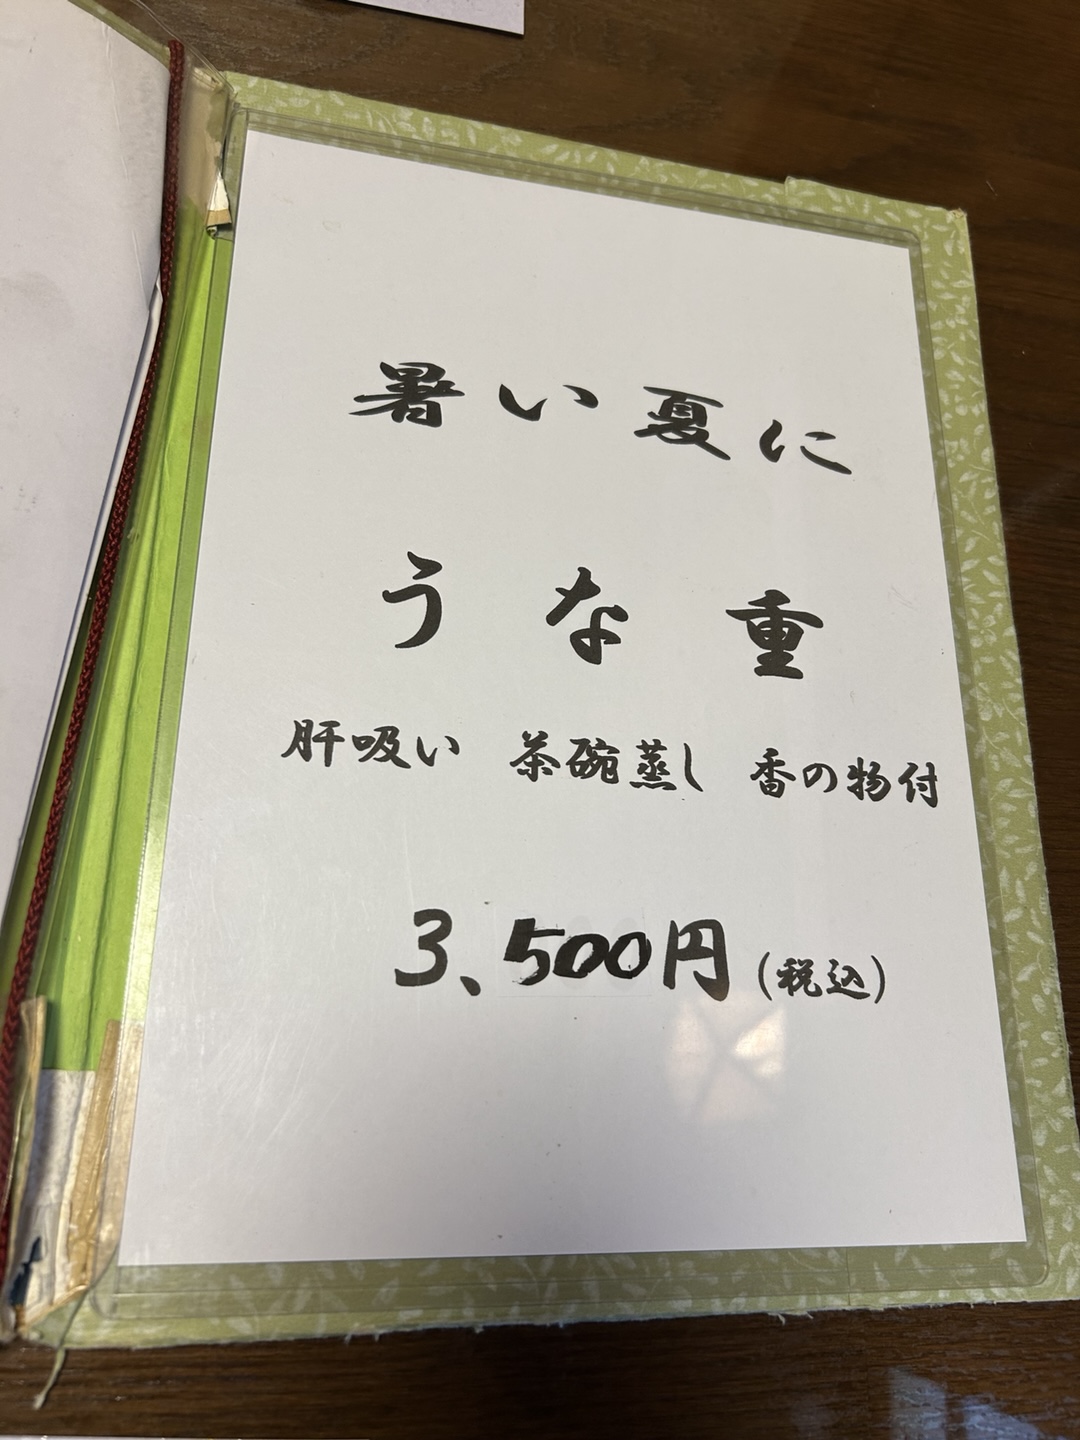 暑い夏に
うな重
肝吸い 茶碗蒸し 香の物付
3、500円(税込)